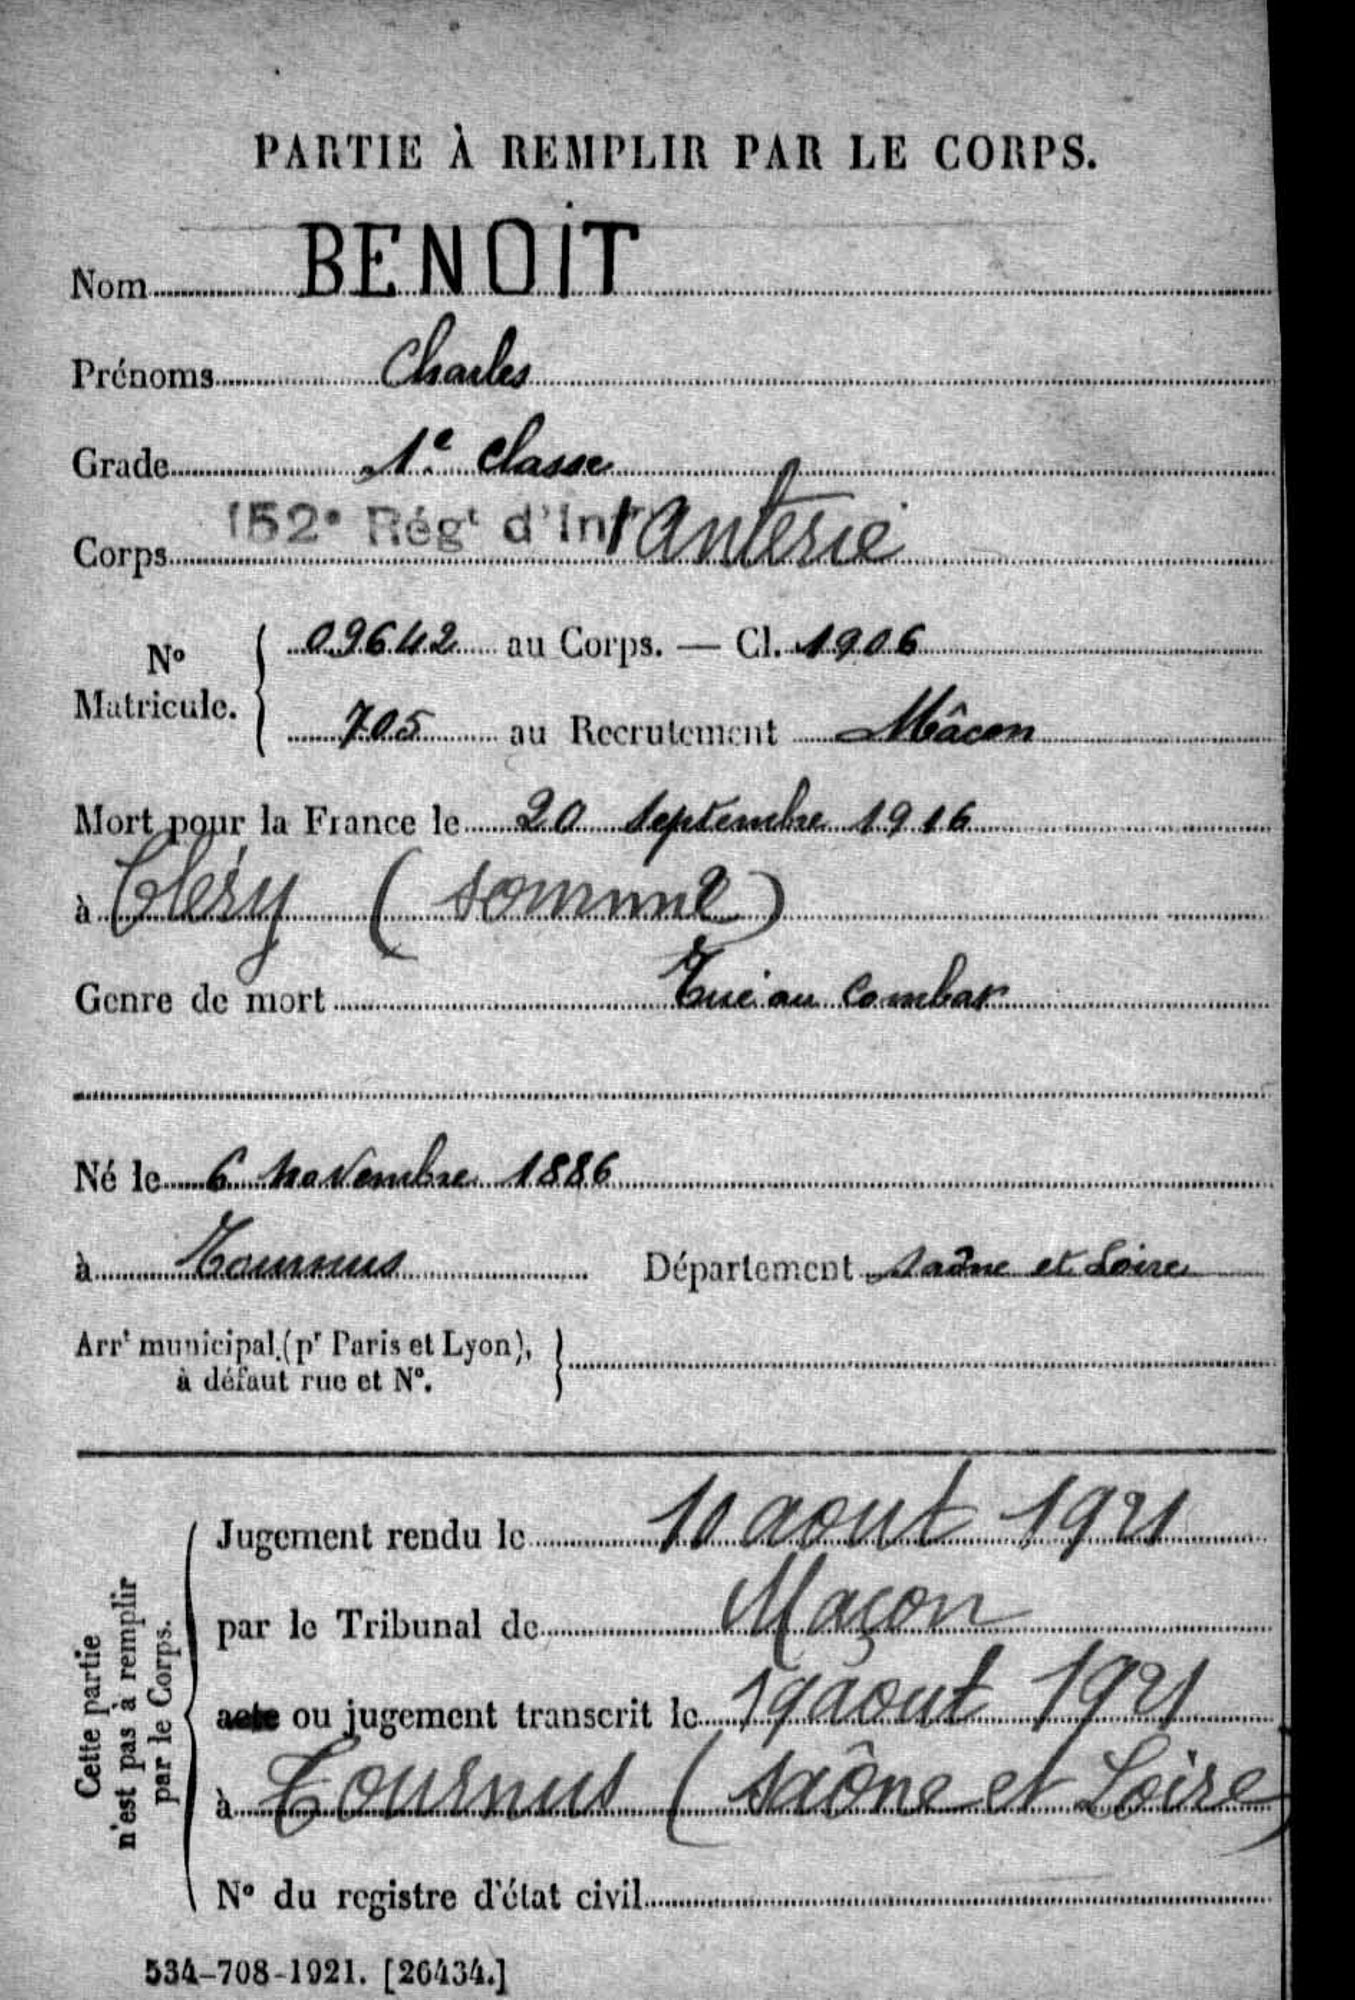 PARTIE À REMPLIR PAR LE CORPS.
Nom BENOIT
Prénoms Charles
Grade 1e classe
Corps 152e Régt d'Infanterie
No Matricule. 09642 au Corps. — Cl. 1906
705 au Recrutement Mâcon
Mort pour la France le 20 septembre 1916
à Cléry (Somme)
Genre de mort Tué au combat
Né le 6 novembre 1886
à Tournus Département Saône et Loire
Arrt municipal (pr Paris et Lyon),
à défaut rue et No.
Cette partie
n'est pas à remplir
par le Corps.
Jugement rendu le 10 aout 1921
par le Tribunal de Maçon
acte ou jugement transcrit le 19 aout 1921
à Tournus (Saône et Loire)
No du registre d'état civil
534-708-1921. [26434.]